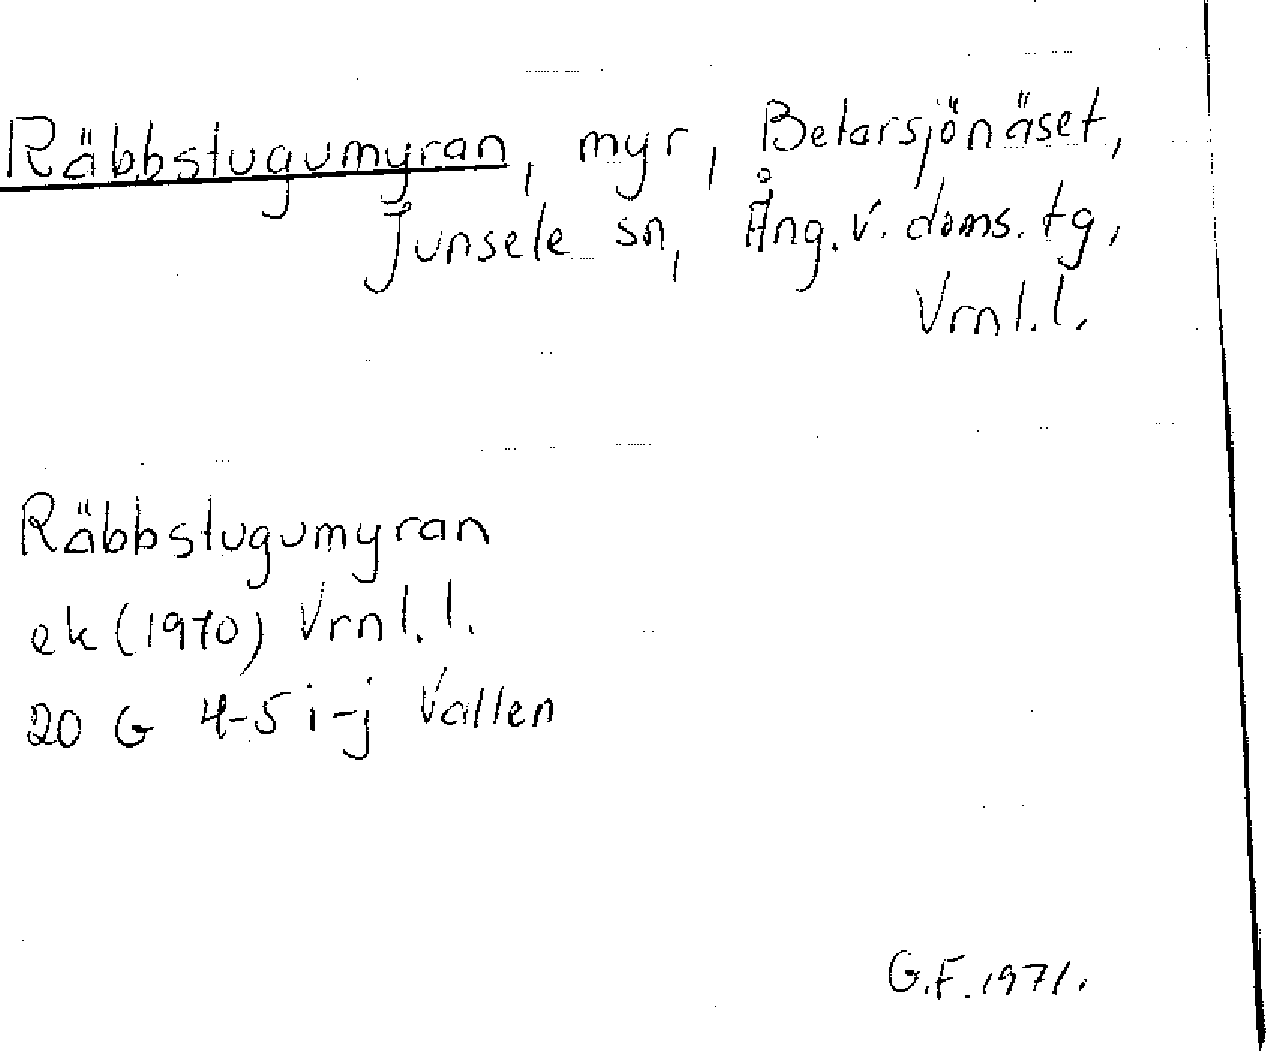 Räbbstugumyran, myr, Betarsjönäset,
Junsele sn, Ång. v. doms. tg,
Vrnl. l.
Räbbstugumyran
ek (1970) Vrnl. l.
20 G 4-5 i-j Vallen
G.F. 1971.